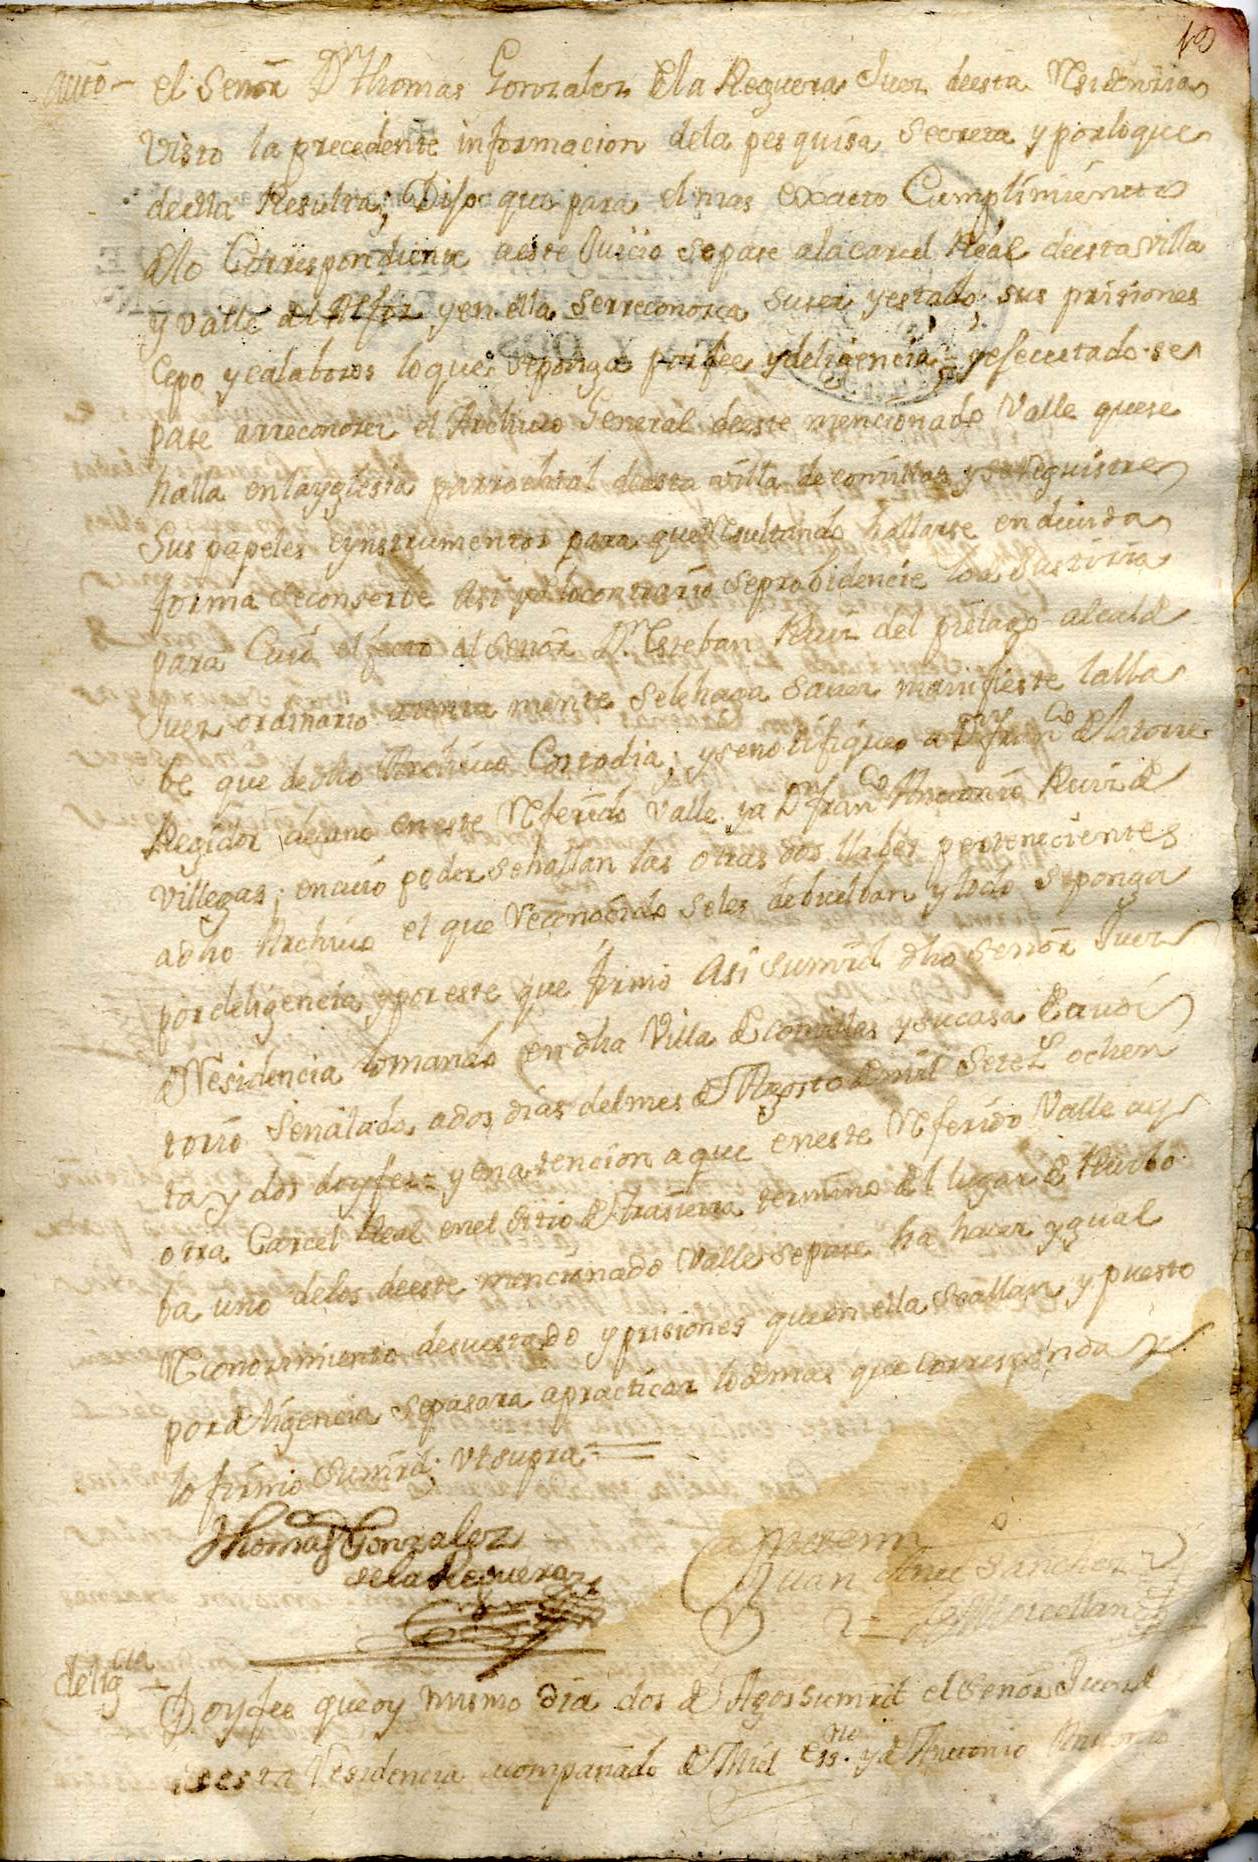 19
auto – el Señor Dn Thomas Gonzalez de la Reguera Juez deesta Residenzia
Visto la precedente informacion dela pesquisa Secreta y porloque
deella Resulta; Dijo que para el mas exacto Cumplimiento
de lo Correspondiente aeste Juicio sepase alacarcel Real deestavilla
y Valle del Alfoz yen ella serreconozca suser yestado; sus prisiones
Cepo ycalabozos loque seponga porfee ydeligencia = yefecutado se
pase arreconozer el Archivo General deeste mencionado Valle quese
halla enlayglesia parrochial deesta villa de comillas y se Reguistre
Sus papeles eynstrumentos para queResultando hallarse endevida
forma seconserbe Asi ydelocontrario seprobidencie lode Justizia
para Cuio efecto al Señor Dn Esteban Ruiz del pielago alcalde
Juez ordinario selehaga saver manifieste lalla
be que dedho Archivo Costodia; ysenotifiqueo a Dn franco delatorre
Regidor decano eneste Referido Valle ya Dn franco Antonio Ruiz de
Villegas; encuio poder sehallan las otras dos llabes pertenecientes
adho Archivo el que Reconocido seles debuelban ytodo seponga
pordeligencia yporeste que firmo Asi sumrd dho señor Juez
deResidencia tomando en dha Villa de comillas ysucasa de audi
torio Señalado ados dias delmes de Agosto demil Setez ochen
ta y dos doyfee = yenatencion aque eneste Referido Valle ay
otra Carcel Real enel sitio de trasierra termino del lugar de Ruilo
ba uno delos deeste mencionado Valle sepase ha hacer ygual
Reconozimiento desuestado yprisiones queenella seallan y puesto
pordeligencia sepasara apracticar lodemas que corresponda y
lo firmo Sumrd; Vtsupra =
Thomas Gonzalez
dela Reguera
Antemi
Juan Anto Sanchez
deligcia – Doyfee queoy mismo dia dos de Agosto sumrd el señor Juez de
esta Residencia acompañado de Mi el essno. yde Antonio